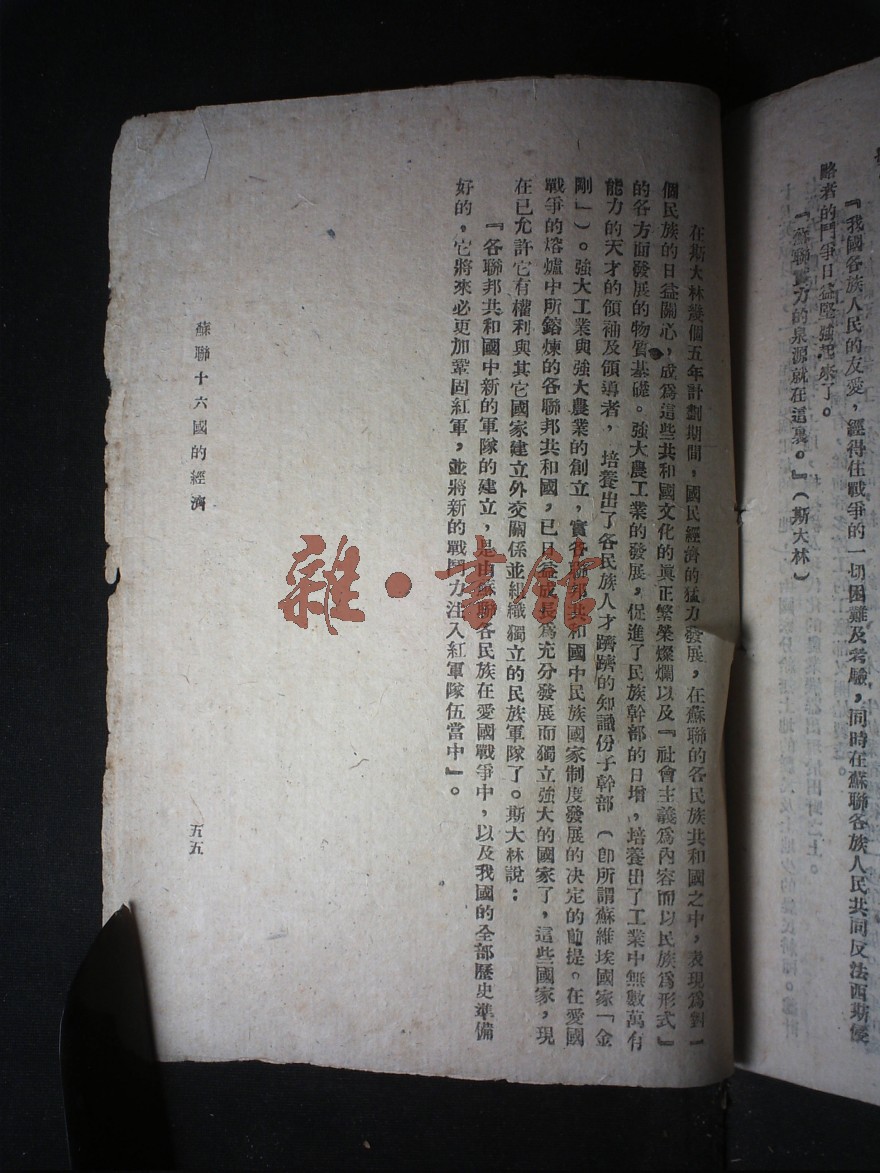 『我國各族人民的友愛，經得住戰爭的一切困難及考驗，同時在蘇聯各族人民共同反法西斯侵
略者的鬥爭日益堅強起來了。
『蘇聯實力的泉源就在這裏。』（斯大林）
在斯大林幾個五年計劃期間，國民經濟的猛力發展，在蘇聯的各民族共和國之中，表現爲對一
個民族的日益關心，成爲這些共和國文化的眞正繁榮燦爛以及『社會主義爲內容而以民族爲形式』
的各方面發展的物質基礎。強大農工業的發展，促進了民族幹部的日增，培養出了工業中無數萬有
能力的天才的領袖及領導者，培養出了各民族人才躋躋的知識份子幹部（卽所謂蘇維埃國家「金
剛」）。強大工業與強大農業的創立，實各聯邦共和國中民族國家制度發展的决定的前提。在愛國
戰爭的熔爐中所鎔煉的各聯邦共和國，已日益成長爲充分發展而獨立強大的國家了，這些國家，現
在已允許它有權利與其它國家建立外交關係並組織獨立的民族軍隊了。斯大林說：
『各聯邦共和國中新的軍隊的建立，是由蘇聯各民族在愛國戰爭中，以及我國的全部歷史準備
好的，它將來必更加鞏固紅軍，並將新的戰鬥力注入紅軍隊伍當中』。
蘇聯十六國的經濟
五五
雜·書館